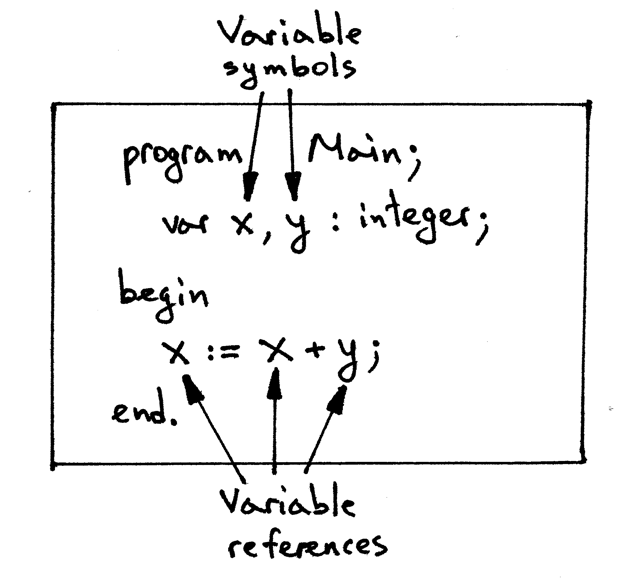 Variable
symbols
program Main;
var x, y : integer;
begin
x := x + y;
end.
Variable
references